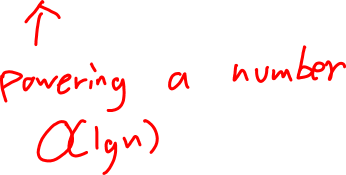 ↑
Powering a number
O(lgn)